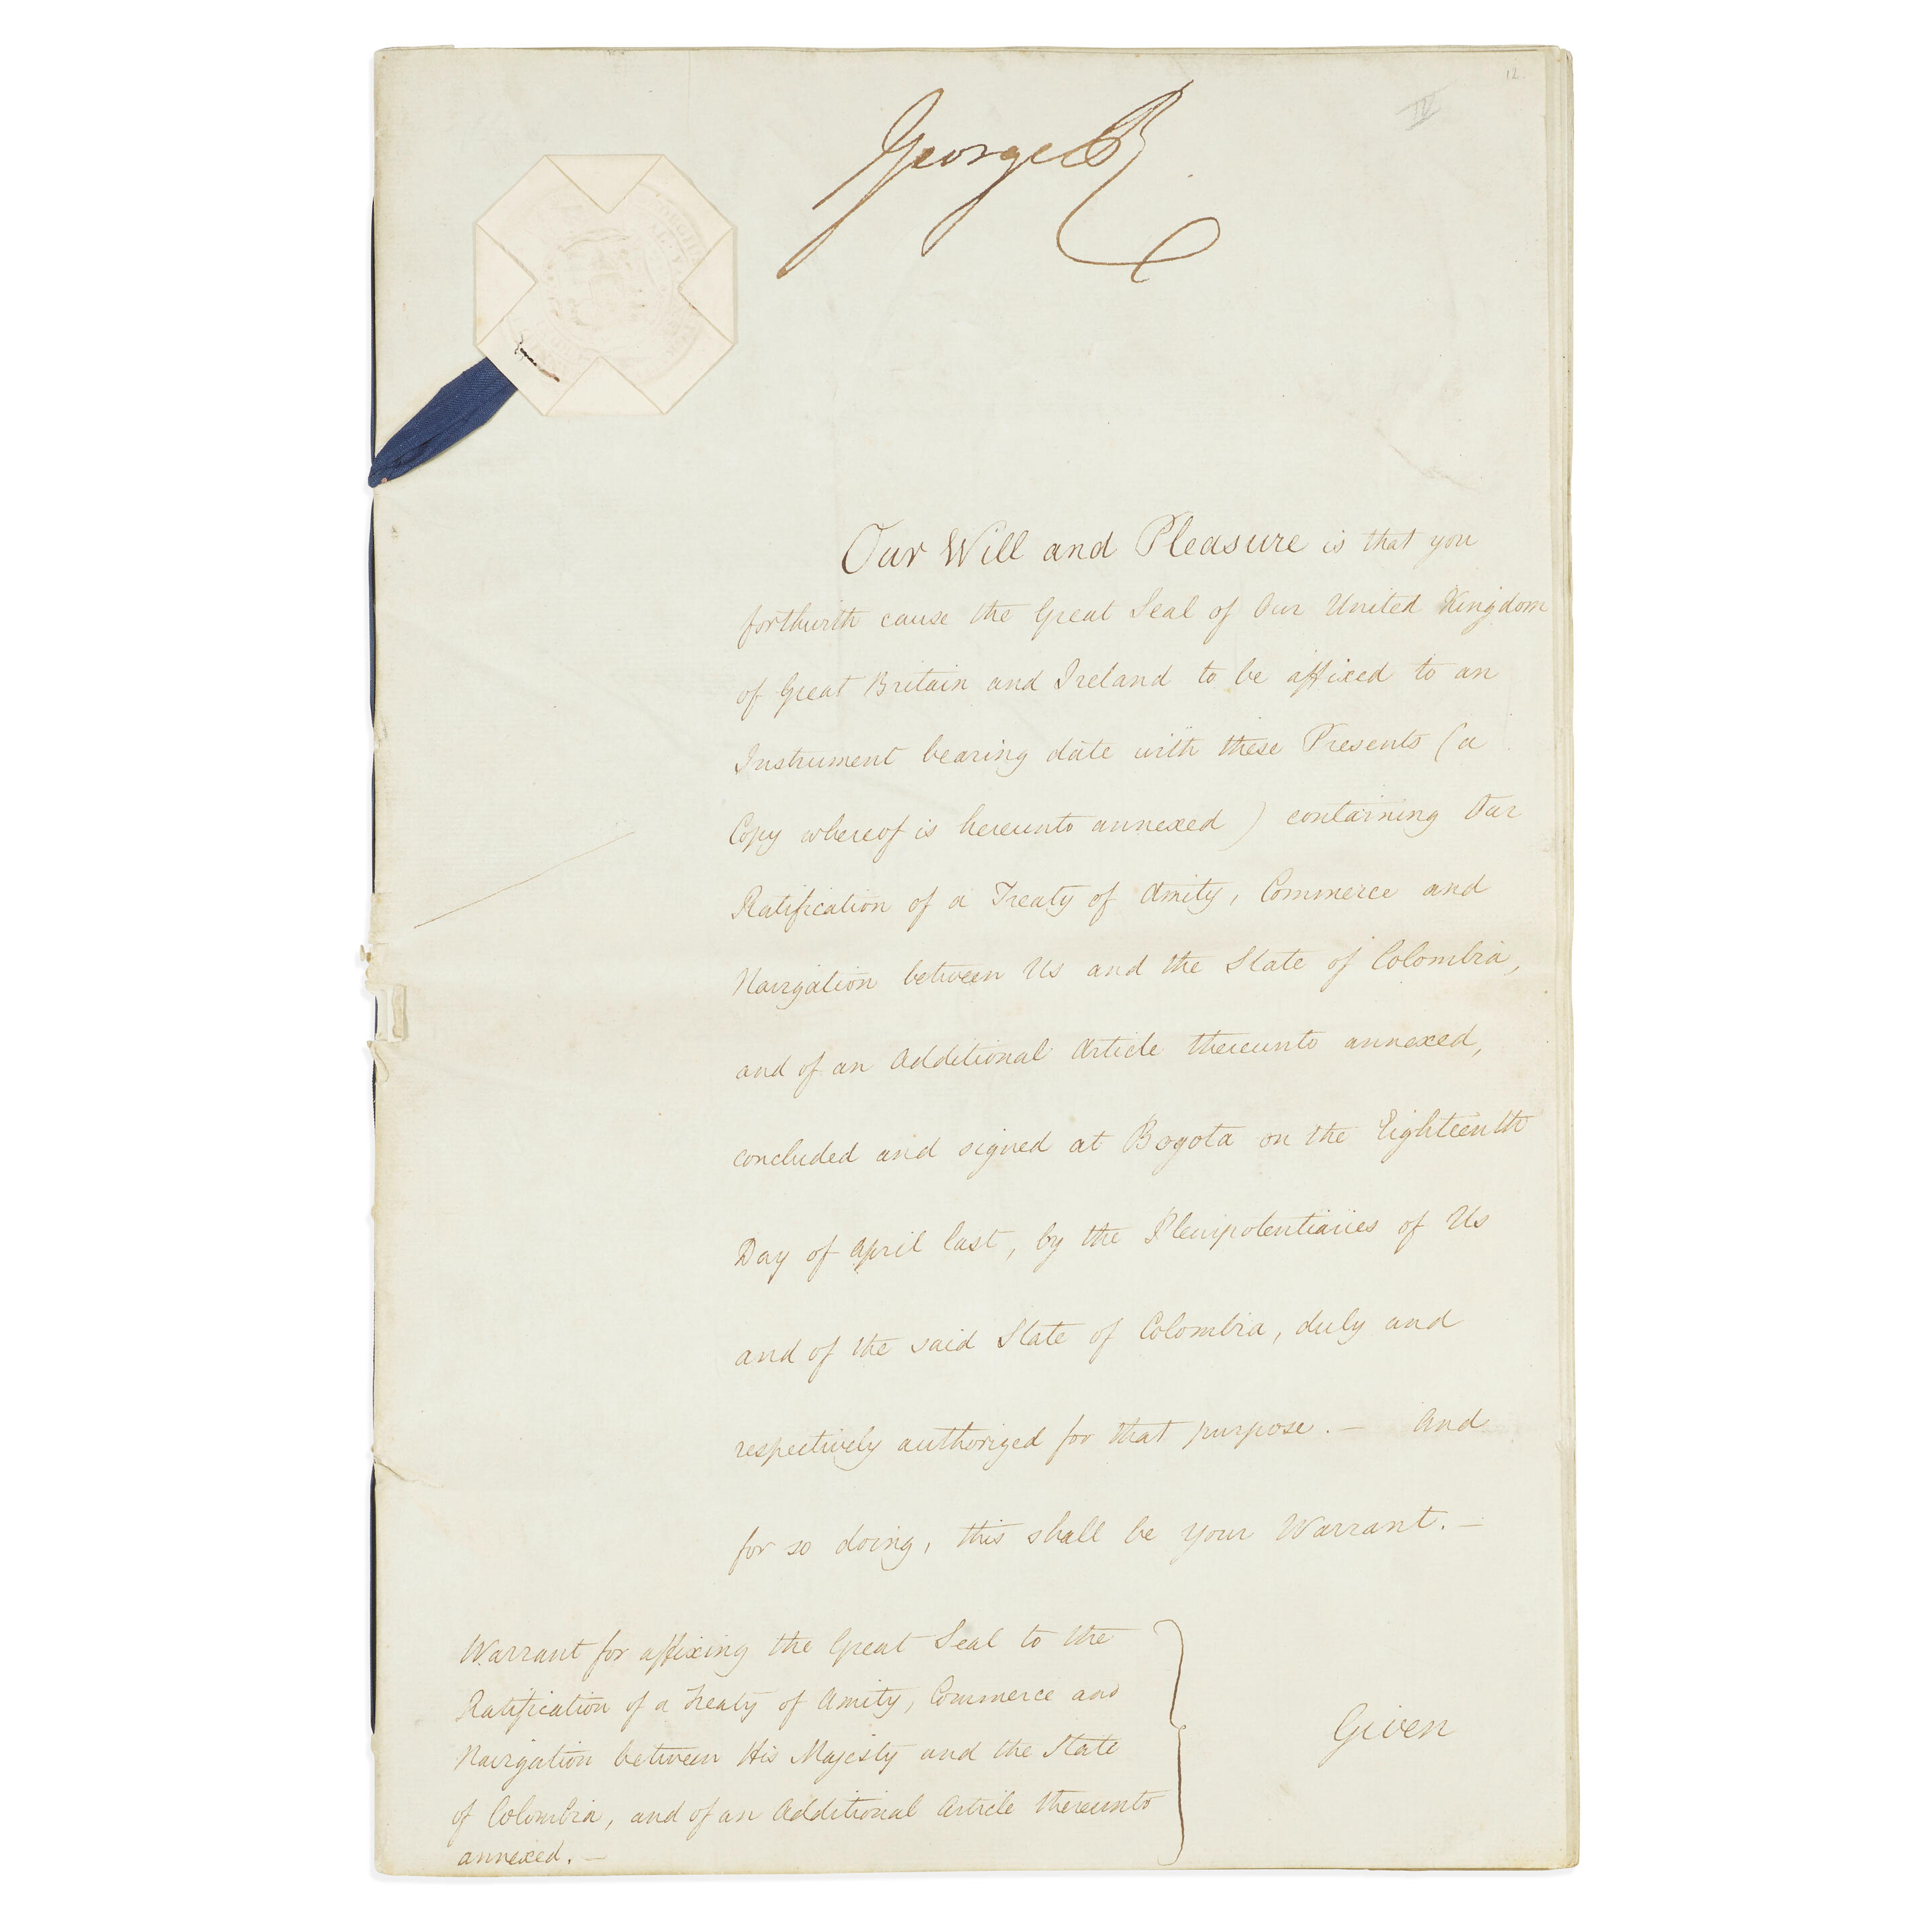 12.
IV
George R
Our Will and Pleasure is that you
forthwith cause the Great Seal of Our United Kingdom
of Great Britain and Ireland to be affixed to an
Instrument bearing date with these Presents (a
Copy whereof is hereunto annexed) containing Our
Ratification of a Treaty of Amity, Commerce and
Navigation between Us and the State of Colombia,
and of an Additional Article thereunto annexed,
concluded and signed at Bogota on the Eighteenth
Day of April last, by the Plenipotentiaries of Us
and of the said State of Colombia, duly and
respectively authorized for that purpose. — And
for so doing, this shall be your Warrant. —
Warrant for affixing the Great Seal to the
Ratification of a Treaty of Amity, Commerce and
Navigation between His Majesty and the State
of Colombia, and of an Additional Article thereunto
annexed. —
Given